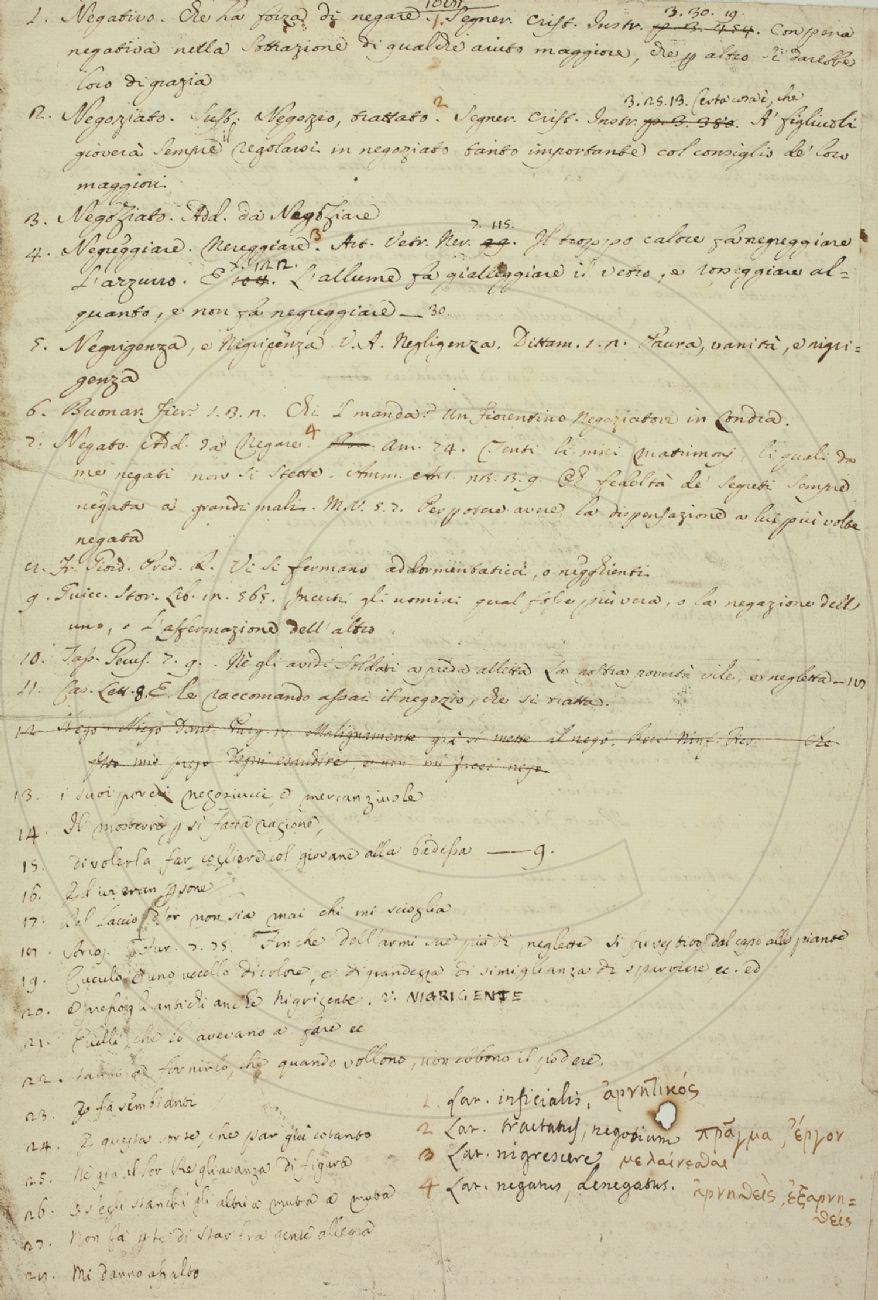 1. Negativo. Che ha forza di negare. 1. Segner. Crist. Instr. 3. 30. 19 p. 3. 454. Con pena
negativa nella sottrazione di qualche aiuto maggiore, che p altro si darebbe
loro di grazia
2. Negoziato. Sust. Negozio, trattato. 2 Segner. Crist. Instr. 3. 25. 13. Certa cosa è, che p. 3. 380. A' figliuoli
gioverà sempre il regolarsi in negoziato tanto importante col consiglio de' loro
maggiori
3. Negoziato. Add. da Negoziare
4. Negreggiare. Nereggiare. 3 Art. Vetr. Ner. 7. 115. Il troppo calore fa negreggiare
l'azzurro. E L'allume fa gialleggiare il vetro, e rosseggiare al=
quanto, e non fa negreggiare — 30.
5. Negrigenza, e Nigrigenza V. A. Negligenza. Dittam. 1. n. Paura, vanità, e nigri=
genza
6. Buonar. Fier. 1. 3. n. Chi I manda? Un fiorentino Negoziatore in Londra.
7. Negato. Add. da Negare. 4 Am. 24. Centi li miei matrimonj, li quali da
me negati non si stette. Amm. Ant. 18. 3. 9. Ch fedeltà de' segreti sempre
negata a' grandi mali. M. V. 5. 7. Per potere avere la dispensazione a lui più volte
negata
8. Fr. Giord. Pred. R. Vi si fermano addormentaticci, o nigghienti
9. Guicc. Stor. Lib. 18. 565. Incerti gli uomini qual fosse più vera, o la negazione dell'
uno, o l'affermazione dell'altro.
10. Tass. Gerus. 7. 9. Nè gli avidi soldati a preda alletta La nostra povertà vile, e negletta — 18
11. Cas. Lett. 8. E le raccomando assai il negozio, che si tratta.
12 Nego. Niego Dant. Purg. 17. Malignamente già si mette al nego. Bocc. Ninf. Fies. Che
esto mio prego Degni esaudire, e non mi facci nego
13. i suoi poveri negoziucci, e mercanziuole
14. Il mosterrò p sì fatta ragione,
15. di volerla far cogliere col giovane alla badessa — 9.
16. Ed in gran psone
17. Del laccio d'or non sia mai chi mi scioglia
18. Arios. Fur. 7. 75. Finche dell'armi sue più dì neglette si fu vestito dal capo alle piante
19. Cuculo è uno uccello di colore, e di grandezza di simiglianza di sparviere ec. ed
20. Dissero gli antichi anche Nigrigente. V. NIGRIGENTE
21. Quelli, che lo avevano a fare ec
22. tardi a fornirlo, che quando vollono, non ebbono il podere.
23. p fa sembianti
24. E questa sorte, che par giù cotanto
25. Nè già il sor che gli avanza di figura
26. S'egli stanchi gli altri a muta a muta
27. Non fa p te di star fra gente allegra
28. Mi danno assalto
1 Lat. inficialis, ἀρνητικός
2 Lat. tractatus, negotium πρᾶγμα, ἔργον
3 Lat. nigrescere μελαίνεσθαι
4 Lat. negatus, denegatus. ἀρνηθεὶς, ἐξαρνη=
θείς